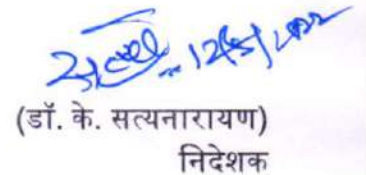 12/5/2022
(डॉ. के. सत्यनारायण)
निदेशक